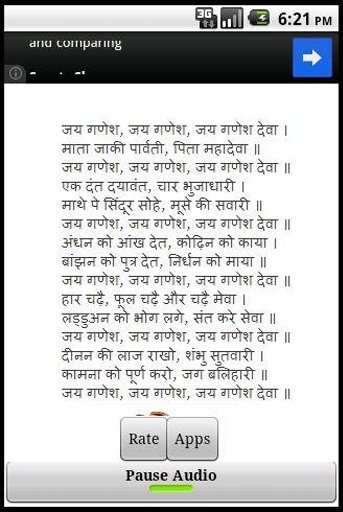 3G
6:21 PM
and comparing
जय गणेश, जय गणेश, जय गणेश देवा ।
माता जाकी पार्वती, पिता महादेवा ॥
जय गणेश, जय गणेश, जय गणेश देवा ॥
एक दंत दयावंत, चार भुजाधारी ।
माथे पे सिंदूर सोहे, मूसे की सवारी ॥
जय गणेश, जय गणेश, जय गणेश देवा ॥
अंधन को आंख देत, कोढ़िन को काया ।
बांझन को पुत्र देत, निर्धन को माया ॥
जय गणेश, जय गणेश, जय गणेश देवा ॥
हार चढ़ै, फूल चढ़ै और चढ़ै मेवा ।
लड्डुअन को भोग लगे, संत करे सेवा ॥
जय गणेश, जय गणेश, जय गणेश देवा ॥
दीनन की लाज राखो, शंभु सुतवारी ।
कामना को पूर्ण करो, जग बलिहारी ॥
जय गणेश, जय गणेश, जय गणेश देवा ॥
Rate Apps
Pause Audio